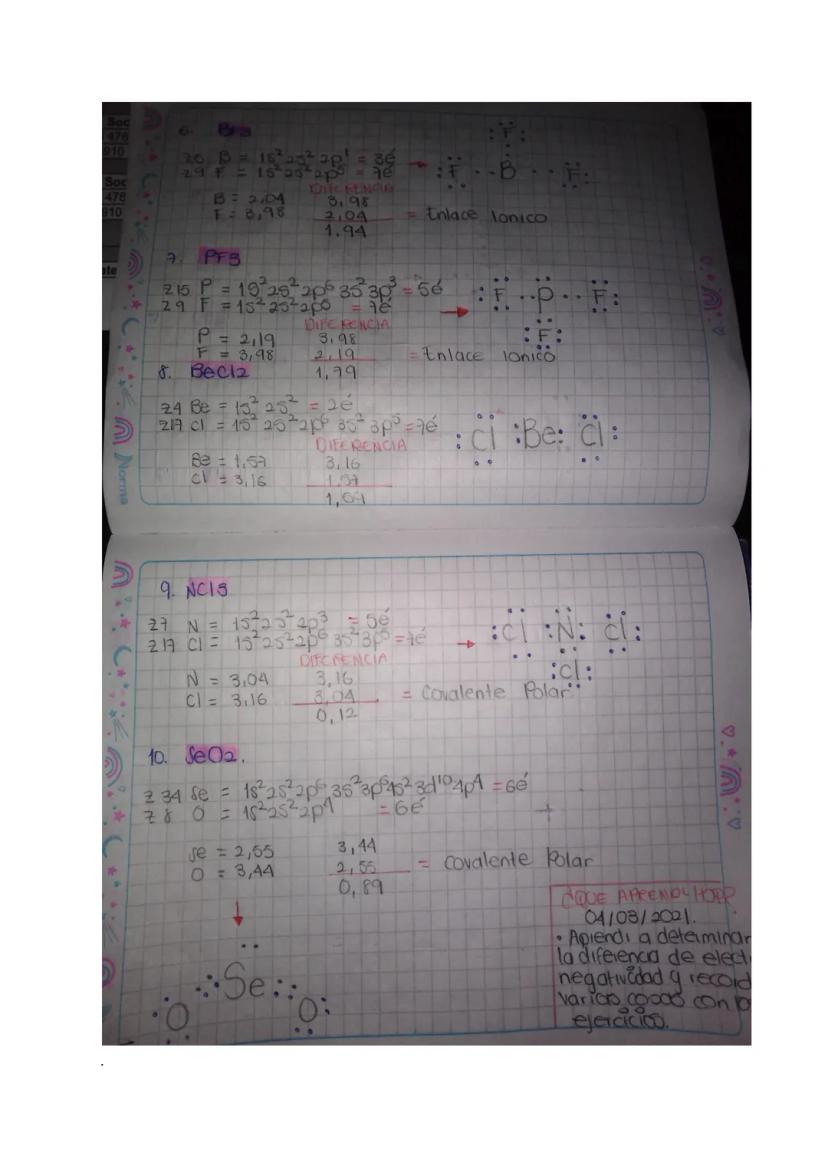 Soc
476
910
Soc
476
910
ate
6. BF3
Z5 B = 1s² 2s² 2p¹ = 3é
Z9 F = 1s² 2s² 2p⁵ = 7é
F
F B F
DIFERENCIA
B = 2,04 3,98
F = 3,98 2,04 = Enlace Ionico
1.94
7. PF3
Z15 P = 1s² 2s² 2p⁶ 3s² 3p³ = 5é
Z9 F = 1s² 2s² 2p⁵ = 7é
F P F
F
DIFERENCIA
P = 2,19 3,98
F = 3,98 2,19 = Enlace ionico
1,79
8. BeCl2
Z4 Be = 1s² 2s² = 2é
Z17 Cl = 1s² 2s² 2p⁶ 3s² 3p⁵ = 7é
:Cl :Be: Cl:
DIFERENCIA
Be = 1,57 3,16
Cl = 3,16 1,57
Norma
9. NCl3
Z7 N = 1s² 2s² 2p³ = 5é
Z17 Cl = 1s² 2s² 2p⁶ 3s² 3p⁵ = 7é
:Cl :N: Cl:
:Cl:
DIFERENCIA
N = 3,04 3,16
Cl = 3,16 3,04 = Covalente Polar
0,12
10. SeO2.
Z 34 Se = 1s² 2s² 2p⁶ 3s² 3p⁶ 4s² 3d¹⁰ 4p⁴ = 6é
Z 8 O = 1s² 2s² 2p⁴ = 6é
Se = 2,55 3,44
O = 3,44 2,55 = Covalente Polar
0,89
Se
O O
¿QUE APRENDI HOY?
04/03/2021.
• Aprendi a determinar
la diferencia de elect
negatividad y record
varias cosas con
ejercicios.